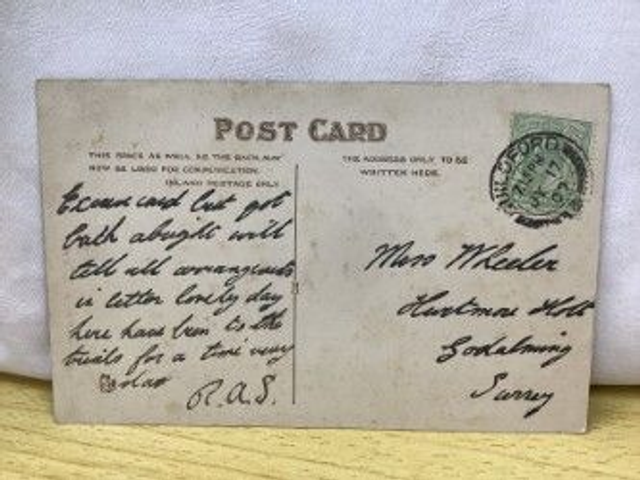 POST CARD
THIS SPACE AS WELL AS THE BACK MAY
NOW BE USED FOR COMMUNICATION.
INLAND POSTAGE ONLY.
THE ADDRESS ONLY TO BE
WRITTEN HERE.
GUILDFORD
Excuse card but got
back alright will
tell all arrangements
in letter lovely day
here have been to the
trials for a time very
R.A.S.
Miss Wheeler
Hurtmore Holt
Godalming
Surrey